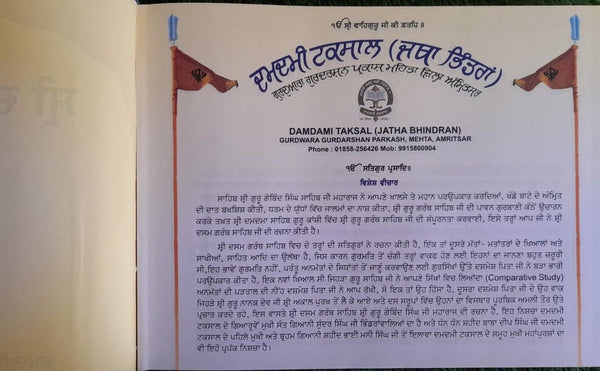 ੴ ਸ੍ਰੀ ਵਾਹਿਗੁਰੂ ਜੀ ਕੀ ਫ਼ਤਹਿ॥
ਦਮਦਮੀ ਟਕਸਾਲ (ਜਥਾ ਭਿੰਡਰਾਂ)
ਗੁਰਦੁਆਰਾ ਗੁਰਦਰਸ਼ਨ ਪ੍ਰਕਾਸ਼ ਮਹਿਤਾ ਜ਼ਿਲ੍ਹਾ ਅੰਮ੍ਰਿਤਸਰ
DAMDAMI TAKSAL (JATHA BHINDRAN)
GURDWARA GURDARSHAN PARKASH, MEHTA, AMRITSAR
Phone : 01858-256426 Mob: 9915800904
ੴ ਸਤਿਗੁਰ ਪ੍ਰਸਾਦਿ॥
ਵਿਸ਼ੇਸ਼ ਵੀਚਾਰ
ਸਾਹਿਬ ਸ੍ਰੀ ਗੁਰੂ ਗੋਬਿੰਦ ਸਿੰਘ ਸਾਹਿਬ ਜੀ ਮਹਾਰਾਜ ਨੇ ਆਪਣੇ ਖਾਲਸੇ ਤੇ ਮਹਾਨ ਪਰਉਪਕਾਰ ਕਰਦਿਆਂ, ਖੰਡੇ ਬਾਟੇ ਦੇ ਅੰਮ੍ਰਿਤ
ਦੀ ਦਾਤ ਬਖਸ਼ਿਸ਼ ਕੀਤੀ, ਧਰਮ ਦੇ ਯੁੱਧਾਂ ਵਿੱਚ ਜਾਲਮਾਂ ਦਾ ਨਾਸ਼ ਕੀਤਾ, ਸ੍ਰੀ ਗੁਰੂ ਗਰੰਥ ਸਾਹਿਬ ਜੀ ਦੀ ਪਾਵਨ ਗੁਰਬਾਣੀ ਕੰਠੋਂ ਉਚਾਰਨ
ਕਰਕੇ ਤਖ਼ਤ ਸ੍ਰੀ ਦਮਦਮਾ ਸਾਹਿਬ ਗੁਰੂ ਕਾਂਸ਼ੀ ਵਿੱਚ ਸ੍ਰੀ ਗੁਰੂ ਗਰੰਥ ਸਾਹਿਬ ਜੀ ਦੀ ਸੰਪੂਰਨਤਾ ਕਰਵਾਈ, ਇਸੇ ਤਰ੍ਹਾਂ ਆਪ ਜੀ ਨੇ ਸ੍ਰੀ
ਦਸਮ ਗਰੰਥ ਸਾਹਿਬ ਜੀ ਦੀ ਰਚਨਾ ਕੀਤੀ ਹੈ।
ਸ੍ਰੀ ਦਸਮ ਗਰੰਥ ਸਾਹਿਬ ਵਿਚ ਦੋ ਤਰ੍ਹਾਂ ਦੀ ਸਤਿਗੁਰਾਂ ਨੇ ਰਚਨਾ ਕੀਤੀ ਹੈ, ਇੱਕ ਤਾਂ ਦੂਸਰੇ ਮੱਤਾਂ- ਮਤਾਂਤਰਾਂ ਦੇ ਖਿਆਲਾਂ ਅਤੇ
ਸਾਖੀਆਂ, ਸਾਹਿਤ ਆਦਿ ਦਾ ਉਲੱਥਾ ਹੈ, ਜਿਸ ਕਾਰਣ ਗੁਰਮਤਿ ਤੋਂ ਚੰਗੀ ਤਰ੍ਹਾਂ ਵਾਕਫ ਹੋਣ ਲਈ ਇਹਨਾਂ ਦਾ ਜਾਨਣਾ ਬਹੁਤ ਜ਼ਰੂਰੀ
ਸੀ,ਇਹ ਭਾਵੇਂ ਗੁਰਮਤਿ ਨਹੀਂ, ਪਰੰਤੂ ਅਨਮੱਤਾਂ ਦੇ ਸਿਧਾਂਤਾਂ ਤੋਂ ਜਾਣੂੰ ਕਰਵਾਉਣ ਲਈ ਗੁਰਸਿੱਖਾਂ ਉੱਤੇ ਦਸ਼ਮੇਸ਼ ਪਿਤਾ ਜੀ ਨੇ ਬੜਾ ਭਾਰੀ
ਪਰਉਪਕਾਰ ਕੀਤਾ ਹੈ, ਇਕ ਨਵਾਂ ਖਿਆਲ ਸੀ ਜਿਹੜਾ ਗੁਰੂ ਸਾਹਿਬ ਜੀ ਨੇ ਆਪਣੇ ਸਿੱਖਾਂ ਵਿਚ ਲਿਆਂਦਾ (Comparative Study)
ਅਨਮੱਤਾਂ ਦੀ ਪੜਤਾਲ ਦੀ ਨੀਂਹ ਦਸ਼ਮੇਸ਼ ਪਿਤਾ ਜੀ ਨੇ ਆਪ ਰੱਖੀ, ਸੋ ਇਕ ਤਾਂ ਉਹ ਹਿੱਸਾ ਹੈ, ਦੂਸਰਾ ਦਸ਼ਮੇਸ਼ ਪਿਤਾ ਜੀ ਦੇ ਉਹ ਵਾਕ
ਜਿਹੜੇ ਸ੍ਰੀ ਗੁਰੂ ਨਾਨਕ ਦੇਵ ਜੀ ਸ੍ਰੀ ਅਕਾਲ ਪੁਰਖ ਤੋਂ ਲੈ ਕੇ ਆਏ ਅਤੇ ਦਸ ਸਰੂਪਾਂ ਵਿੱਚ ਉਹਨਾਂ ਦਾ ਵਿਸਥਾਰ ਪੂਰਬਿਕ ਅਮਲੀ ਤੌਰ ਉਤੇ
ਪ੍ਰਚਾਰ ਕਰਦੇ ਰਹੇ, ਇਸ ਵਾਸਤੇ ਸ੍ਰੀ ਦਸਮ ਗਰੰਥ ਸਾਹਿਬ ਸ੍ਰੀ ਗੁਰੂ ਗੋਬਿੰਦ ਸਿੰਘ ਜੀ ਮਹਾਰਾਜ ਦੀ ਰਚਨਾ ਹੈ, ਇਹ ਨਿਸ਼ਚਾ ਦਮਦਮੀ
ਟਕਸਾਲ ਦੇ ਗਿਆਰ੍ਹਵੇਂ ਮੁਖੀ ਸੰਤ ਗਿਆਨੀ ਸੁੰਦਰ ਸਿੰਘ ਜੀ ਭਿੰਡਰਾਂਵਾਲਿਆਂ ਦਾ ਹੈ ਅਤੇ ਧੰਨ ਧੰਨ ਸ਼ਹੀਦ ਬਾਬਾ ਦੀਪ ਸਿੰਘ ਜੀ ਦਮਦਮੀ
ਟਕਸਾਲ ਦੇ ਪਹਿਲੇ ਮੁਖੀ ਅਤੇ ਬ੍ਰਹਮ ਗਿਆਨੀ ਸ਼ਹੀਦ ਭਾਈ ਮਨੀ ਸਿੰਘ ਜੀ ਤੋਂ ਇਲਾਵਾ ਦਮਦਮੀ ਟਕਸਾਲ ਦੇ ਸਮੂਹ ਮੁਖੀ ਮਹਾਂਪੁਰਸ਼ਾਂ ਦਾ
ਵੀ ਇਹੋ ਪ੍ਰਪੱਕ ਨਿਸ਼ਚਾ ਹੈ।